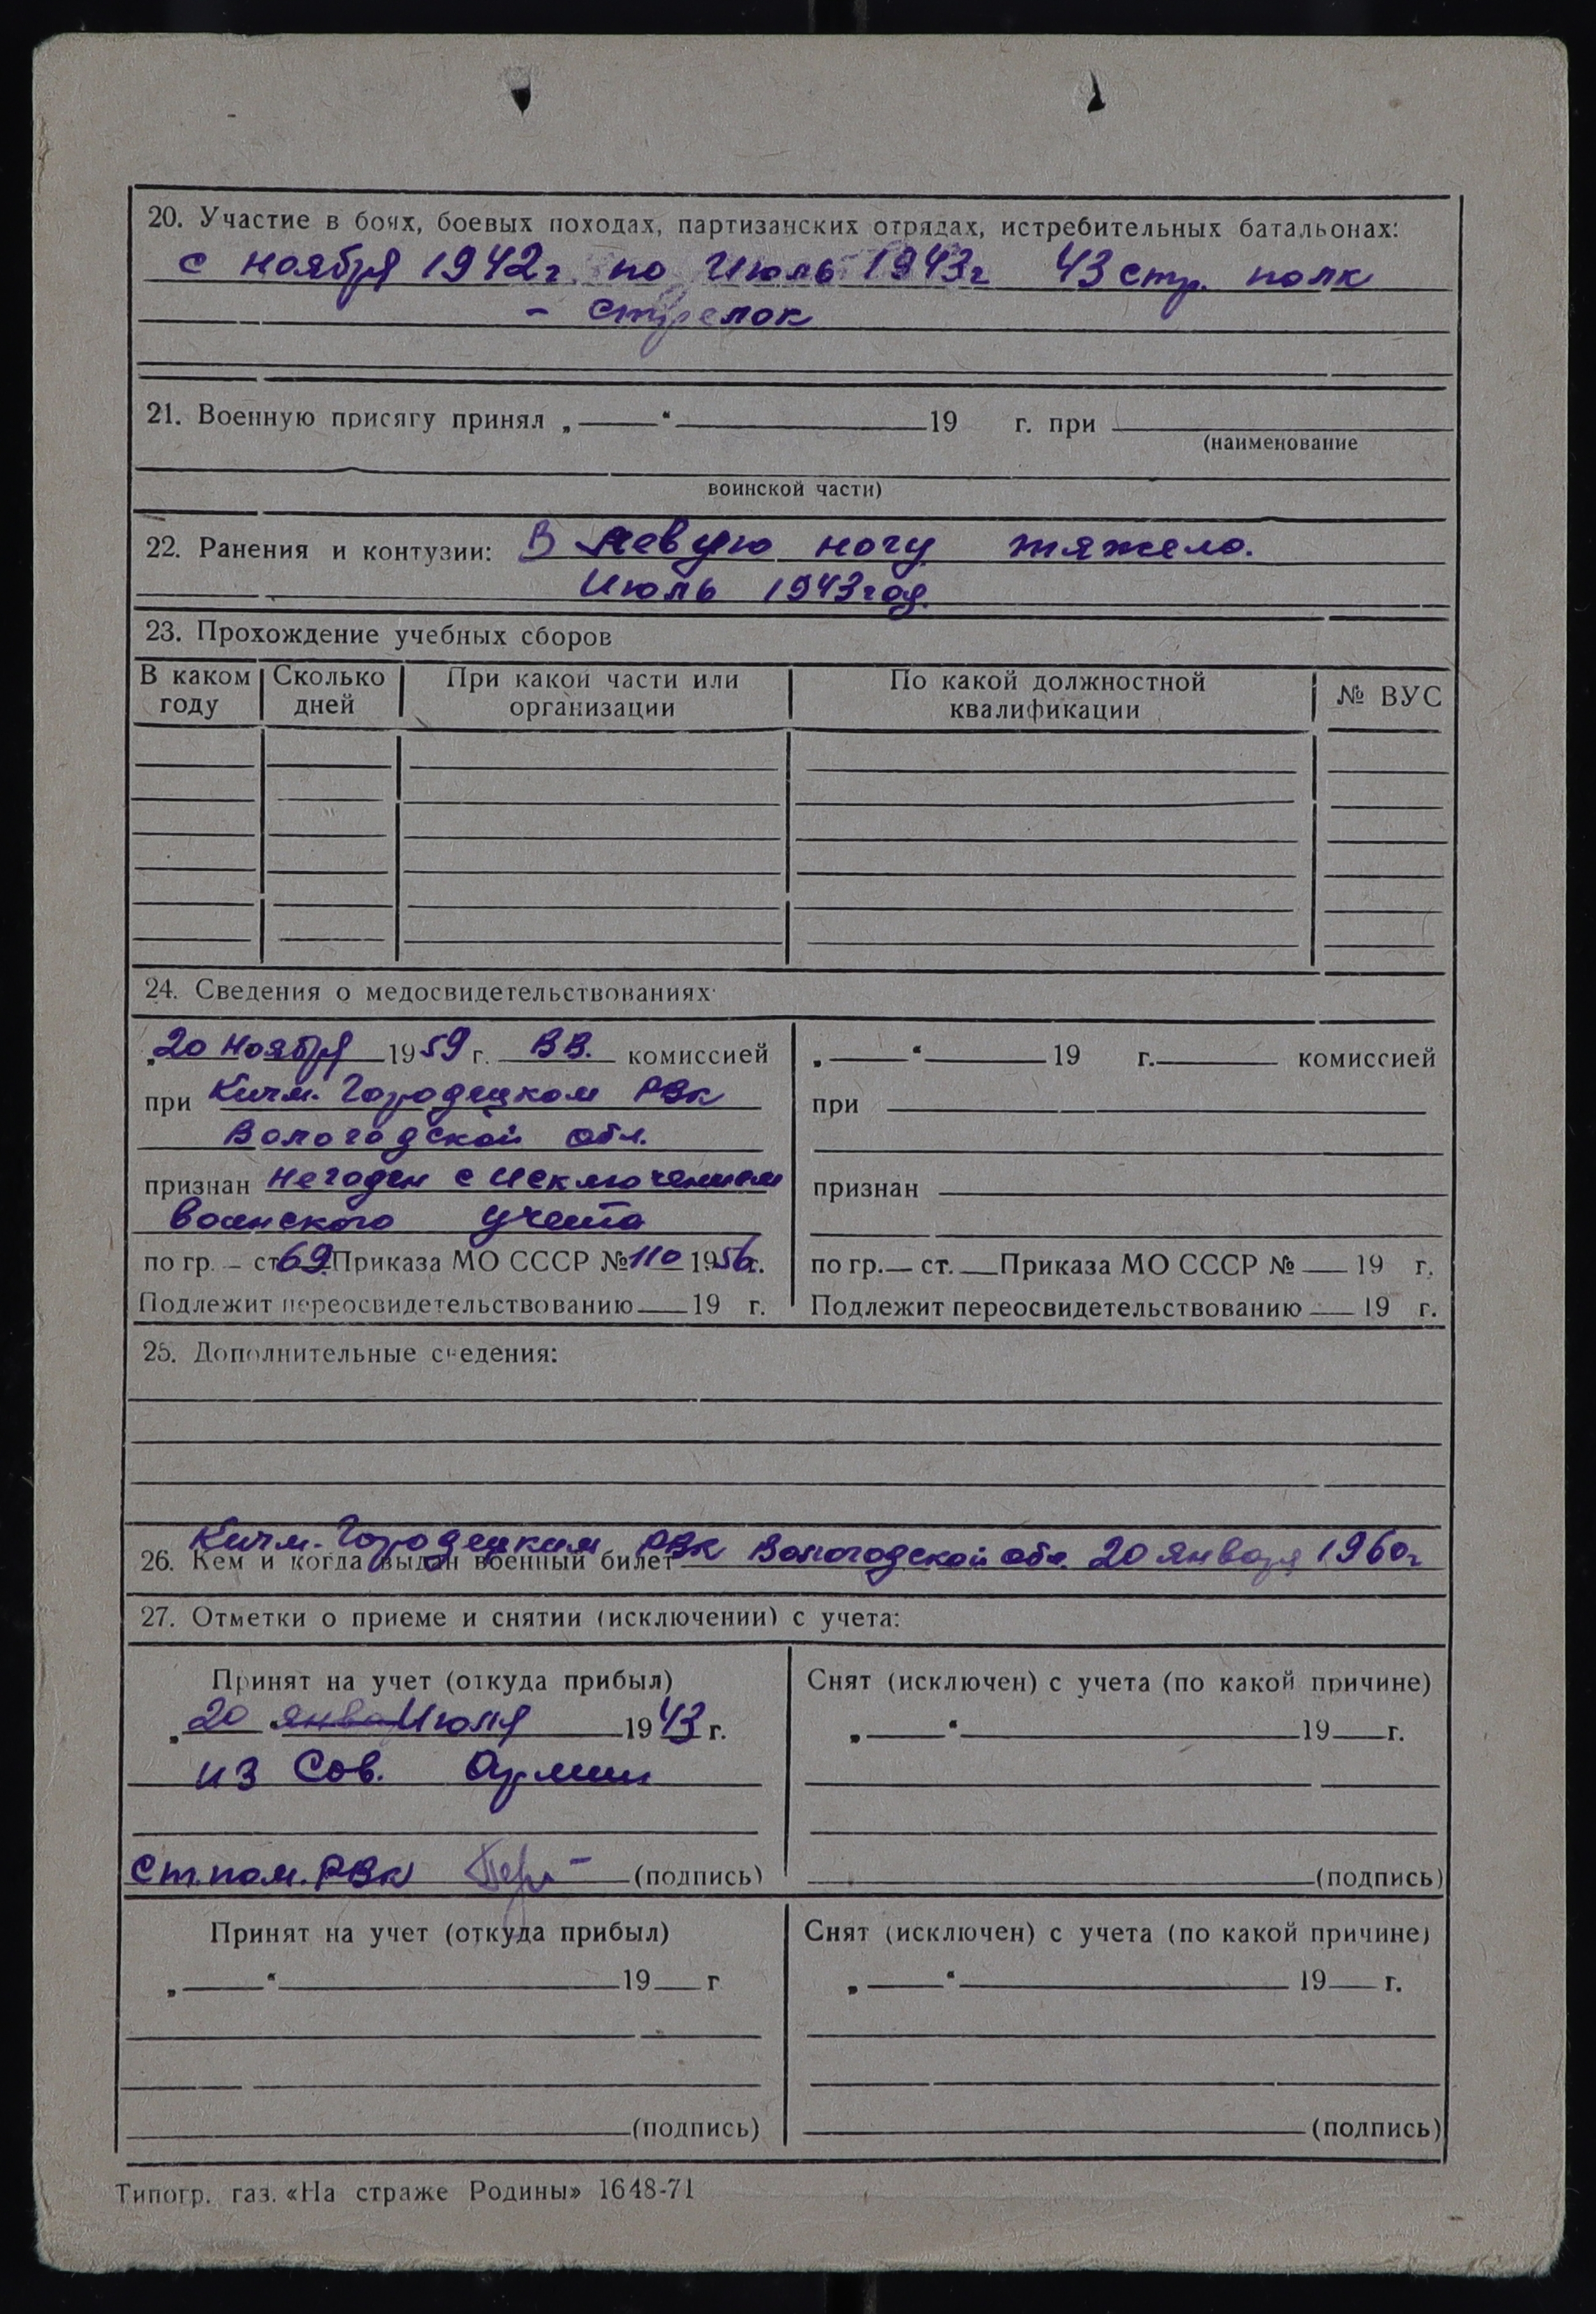 20. Участие в боях, боевых походах, партизанских отрядах, истребительных батальонах:
с ноября 1942г. по Июль 1943г 43 стр. полк
- стрелок
21. Военную присягу принял „ “ 19 г. при
(наименование
воинской части)
22. Ранения и контузии: В левую ногу тяжело.
Июль 1943 год.
23. Прохождение учебных сборов
В каком году Сколько дней При какой части или организации По какой должностной квалификации № ВУС
24. Сведения о медосвидетельствованиях
„20 ноября 1959 г. ВВ. комиссией
при Кичм. Городецком РВк
Вологодской обл.
признан негоден с исключением
воинского учета
по гр. – ст 69. Приказа МО СССР № 110 1956 г.
Подлежит переосвидетельствованию 19 г.
„ “ 19 г. комиссией
при
признан
по гр. ст. Приказа МО СССР № 19 г.
Подлежит переосвидетельствованию 19 г.
25. Дополнительные сведения:
Кичм.-Городецким РВк Вологодской обл. 20 января 1960г
26. Кем и когда выдан военный билет
27. Отметки о приеме и снятии (исключении) с учета:
Принят на учет (откуда прибыл)
„20 янва Июля 1943 г.
из Сов. Армии
Ст. пом. РВк (подпись)
Снят (исключен) с учета (по какой причине)
„ “ 19 г.
(подпись)
Принят на учет (откуда прибыл)
„ “ 19 г
(подпись)
Снят (исключен) с учета (по какой причине)
„ “ 19 г.
(подпись)
Типогр. газ. «На страже Родины» 1648-71